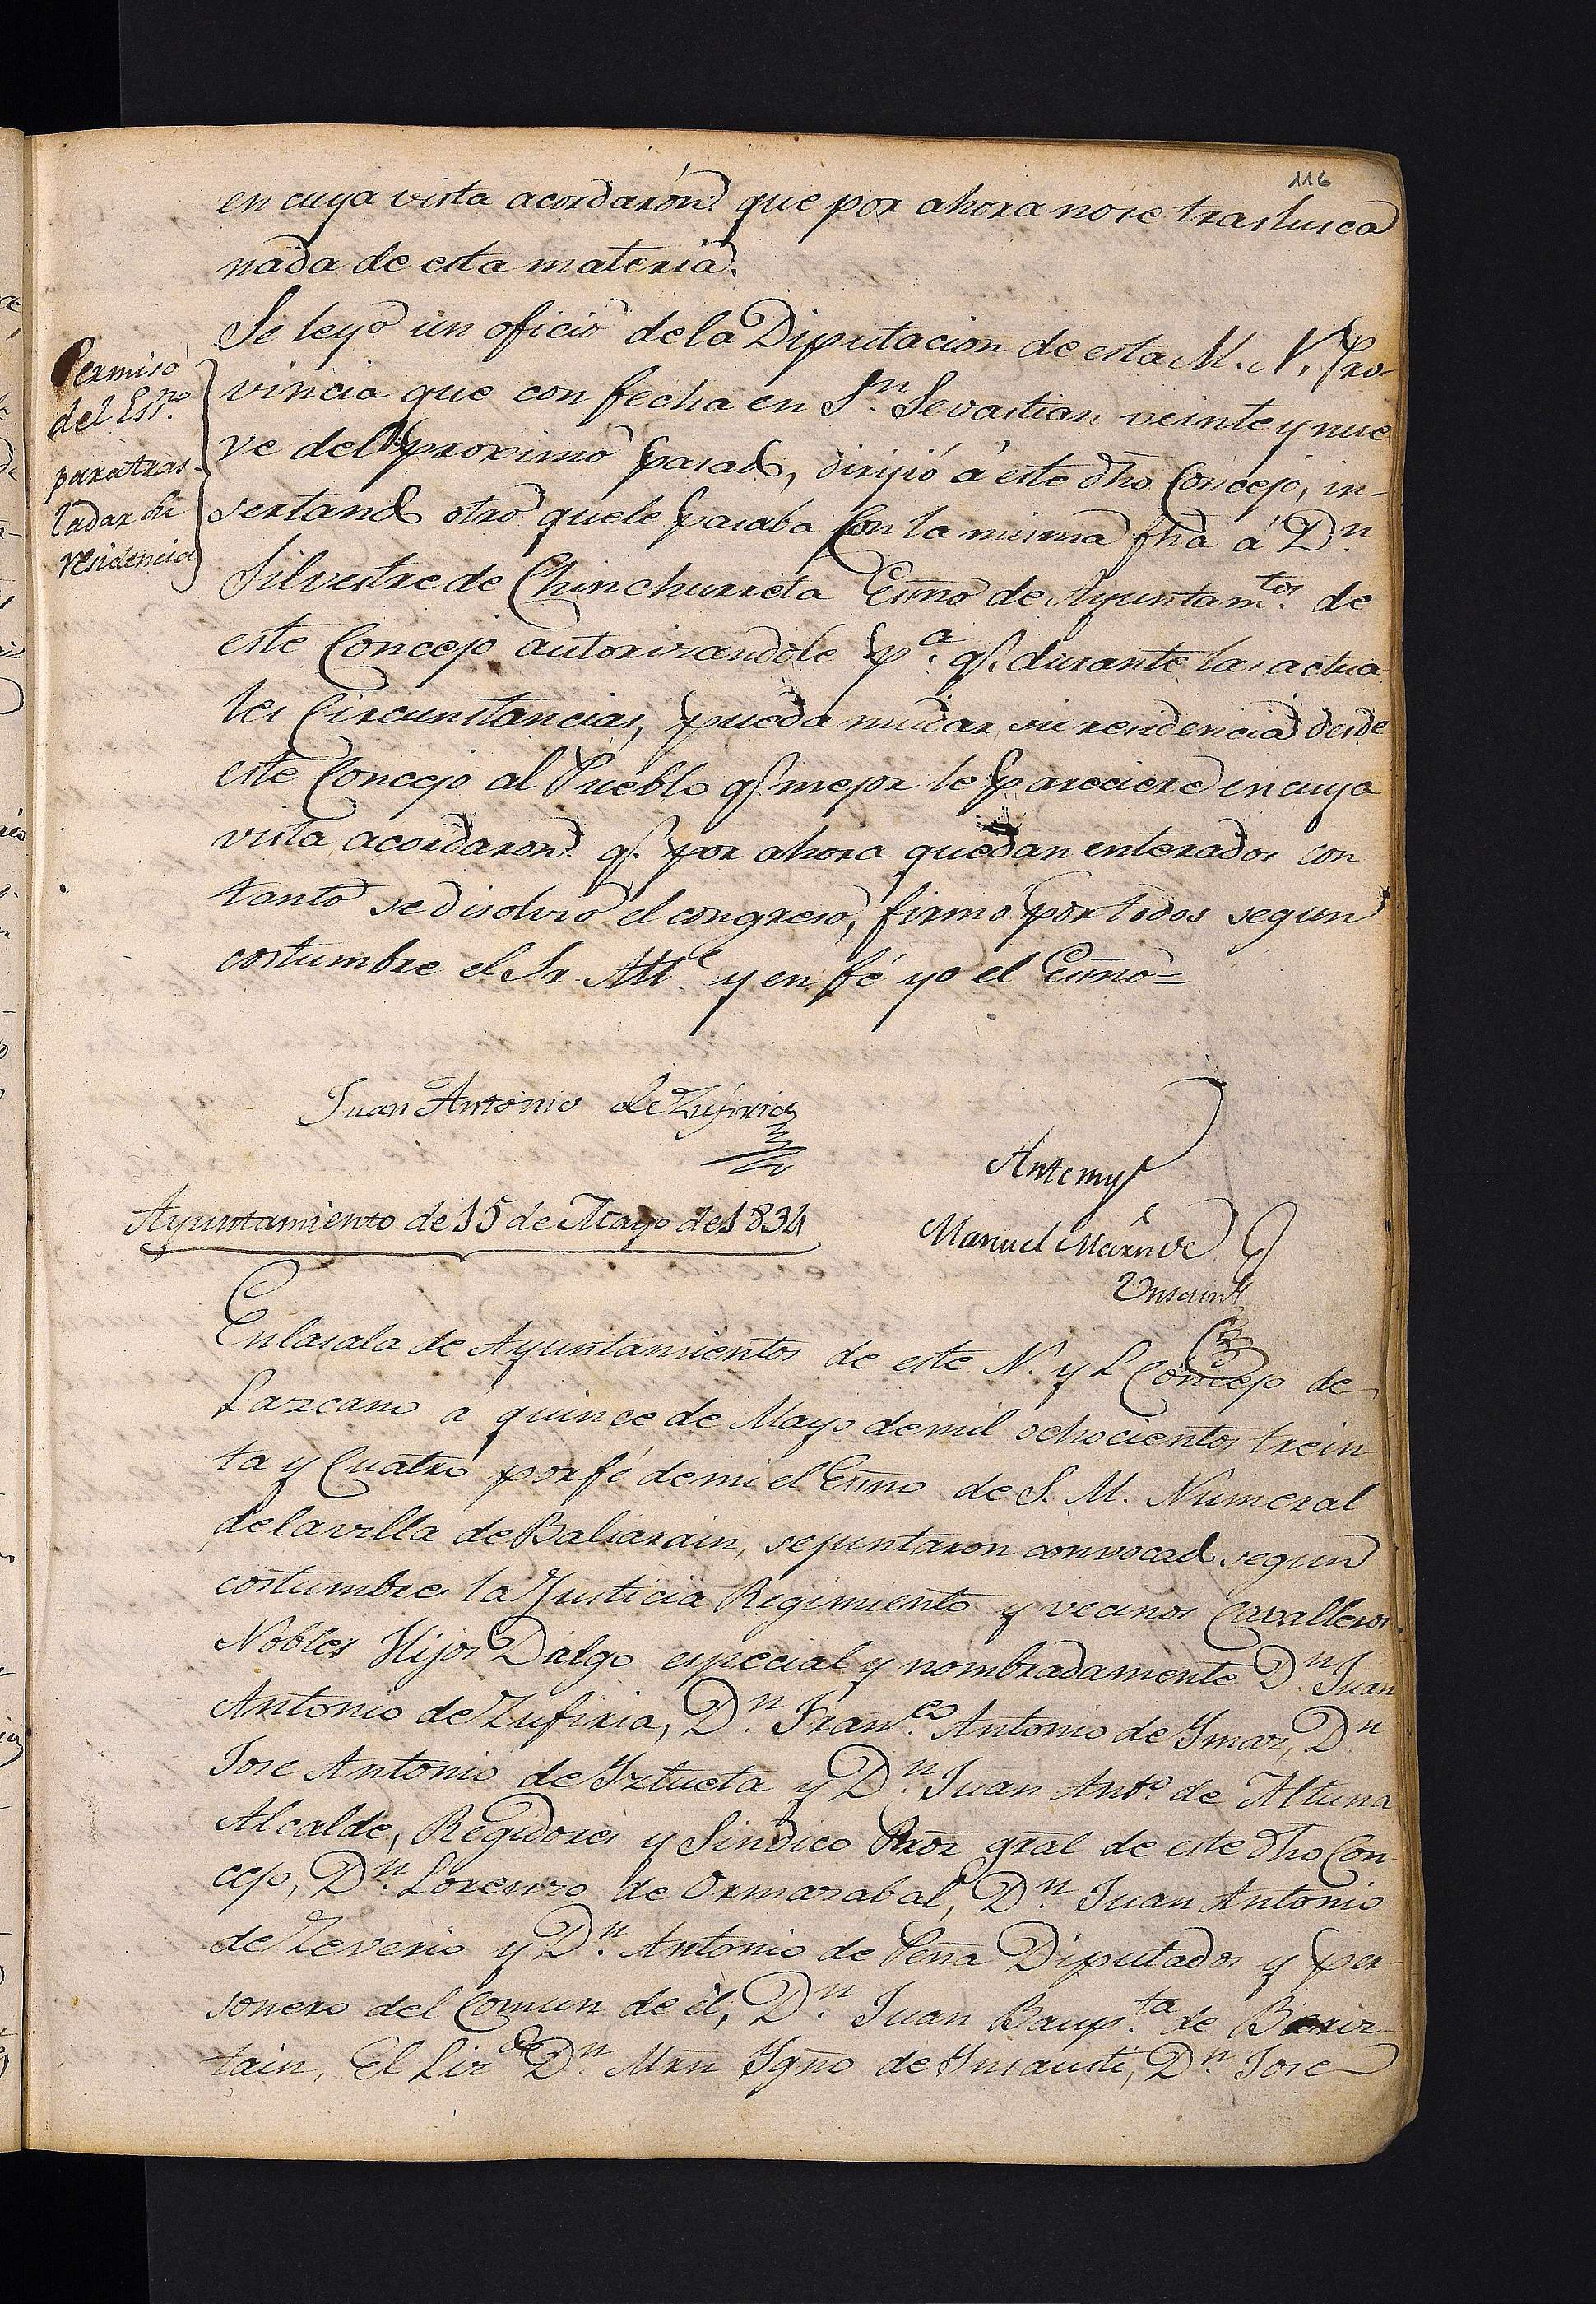 116
en cuya vista acordarón que por ahora no se trasluzca
nada de esta materia.
Permiso
del Essno
para tras-
ladar su
residencia
Se leyó un oficio de la Diputacion de esta M. N. Pro-
vincia que con fecha en Sn. Sevastian veinte y nue
ve del proximo pasado, dirijió á este dho Concejo, in-
sertando otro que le pasaba con la misma fha á Dn.
Silvestre de Chinchurreta Essno de Ayuntamtos. de
este Concejo autorizandole pa. q. durante las actua-
les Circunstancias, pueda mudar su residencia desde
este Concejo al Pueblo q. mejor le pareciere en cuya
vista acordaron q. por ahora quedan enterados con
tanto se disolvió el congreso, firmó por todos segun
costumbre el Sr. Alle. y en fé yo el Essno=
Juan Antonio de Zufiria
Antemy
Manuel Marn de
Ynsausti
Ayuntamiento de 15 de Mayo de 1834
En la sala de Ayuntamientos de este N. y L Concejo de
Lazcano á quince de Mayo de mil ochocientos trein
ta y Cuatro por fé de mi el Essno de S. M. Numeral
de la villa de Baliarain, se juntaron convocados segun
costumbre la Justicia Regimiento y vecinos Cavalleros
Nobles Hijos Dalgo especial y nombradamente Dn. Juan
Antonio de Zufiria, Dn. Franco. Antonio de Ymaz, Dn
Jose Antonio de Yztueta y Dn. Juan Anto. de Altuna
Alcalde, Regidores y Sindico Pror gral de este dho Con-
cejo, Dn. Lorenzo de Ormazabal, Dn. Juan Antonio
de Zeverio y Dn. Antonio de Peña Diputados y per-
sonero del Comun de él, Dn. Juan Baupta. de
tain, El Lizdo Dn. Mrn Ygno de Ynsausti, Dn. Jose